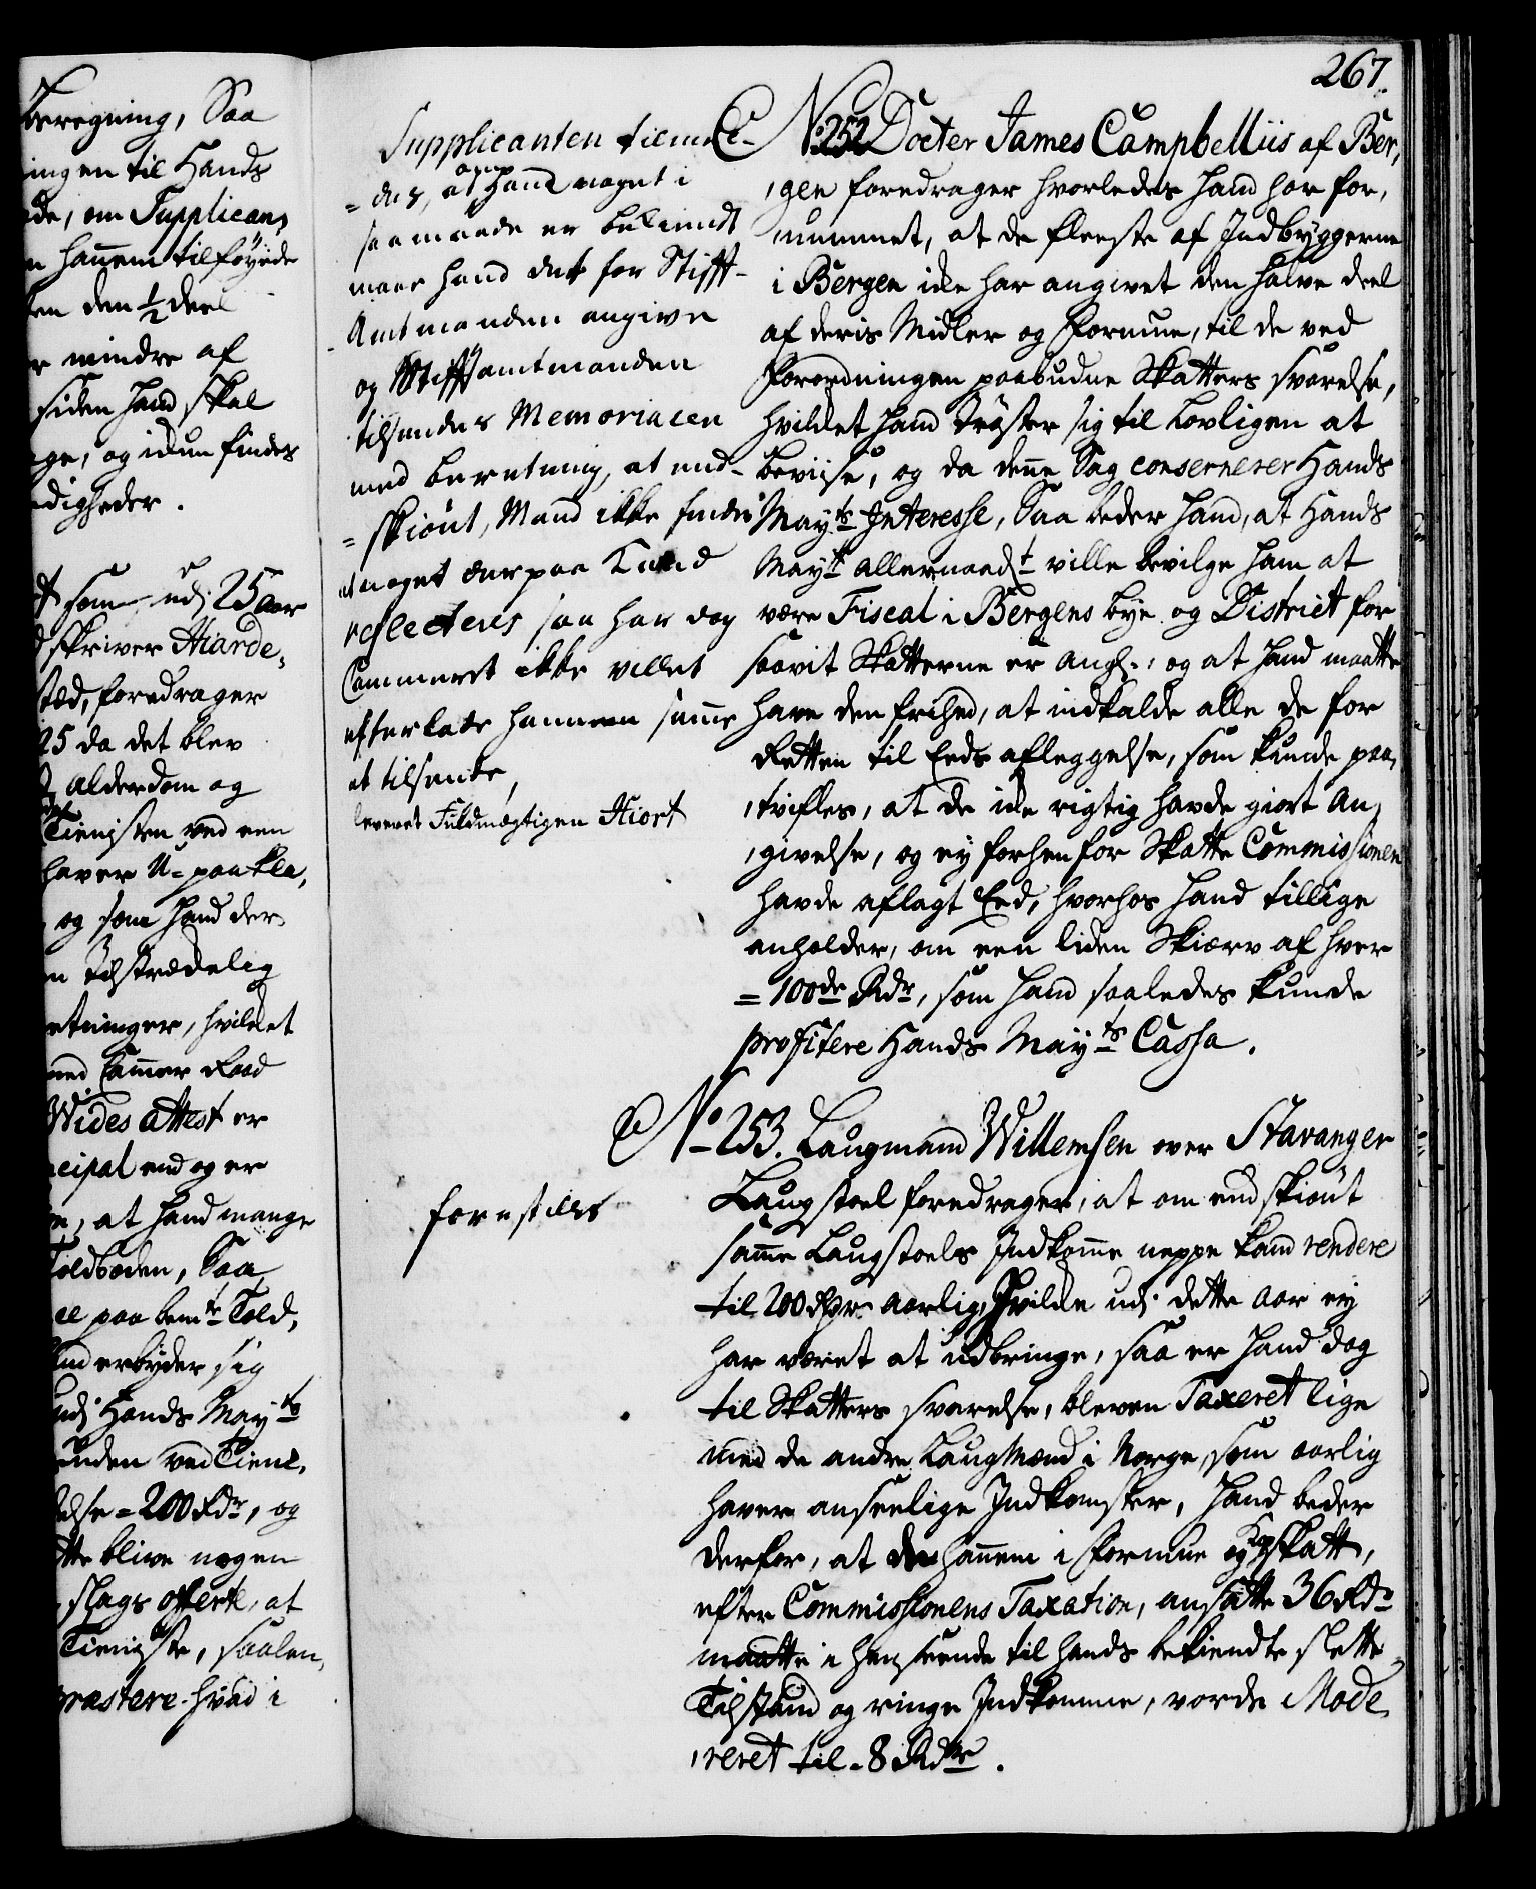 267.
Beregning, Saa
ingen til Hands
de, om Supplican,
n hannem tilføyede
en den 1/2 deel
r mindre af
siden hand skal
ge, og idun findes
digheder.
som udj 25 aar
skriver Hiorde,
sted, foredrager
25 da det blev
alderdom og
Tienisten ved een
haver U= paakla,
og som hand der
n Tilstrædelig
retninger, hvilket
med Cammer Raad
Wides attest er
cipal end og er
e, at hand mange
Toldboden, Saa
el paa bemte Told,
and erbyder sig
udj Hands Mayts
unden ved Tiene,
else = 200 Rdr, og
tte blive nogen
slags offerte, at
Tieniste, saalen,
præstere hvad i
Supplicanten tilmel=
=des, at om hand noget i
saamaade er bekiendt
maae hand det for Stifft=
Amtmanden angive
og Stifftsamtmanden
tilsendes Memorialen
med beretning, at end=
=skiönt, Mand ikke finder
at noget derpaa kand
reflecteris saa har dog
Cammeret ikke villet
efterlade hannem samme
at tilsende,
leveret Fuldmægtigen Hiort
No 252 Docter James Campbelliis af Ber,
,gen foredrager hvorledes hand har for,
,nummet, at de fleeste af Indbyggerne
i Bergen icke har angivet den halve deel
af deris Midler og Formue, til de ved
Forordningen paabudne Skatters svarelse,
hvilket hand trøster sig til Lovligen at
beviise, og da denne Sag consernerer Hands
Mayts Interesse, Saa beder hand, at Hands
Mayt allernaadst ville bevilge ham at
være Fiscal i Bergens bye og District for
saavit Skatterne er angl., og at hand maatte
have den frihed, at indkalde alle de for
Retten til Eeds afleggelse, som kunde paa,
,tvifles, at de icke rigtig havde giort An,
,givelse, og ey forhen for Skatte Commissionen
havde aflagt Eed, hvorhos hand tillige
anholder, om een liden Skiærv af hver
= 100de Rdr, som hand saaledes kunde
profitere Hands Mayts Cassa.
No 253. Laugmand Willemsen over Stavanger
Laugstoel foredrager, at om endskiönt
samme Laugstoels Indkomme neppe kand rendere
til 200 Rdr aarlig, Hvilke udj dette aar ey
har været at udbringe, saa er hand dog
til Skatters svarelse, bleven Taxeret lige
med de andre LaugMænd i Norge, som aarlig
haver anseelige Indkomster, hand beder
derfor, at de hannem i Formue og Kopskatt,
efter Commissionens Taxation, ansatte 36 Rdr
maatte i henseende til hands bekiendte slette
Tilstand og ringe Indkomme, vorde Mode,
,reret til = 8 Rdr.
forestilles